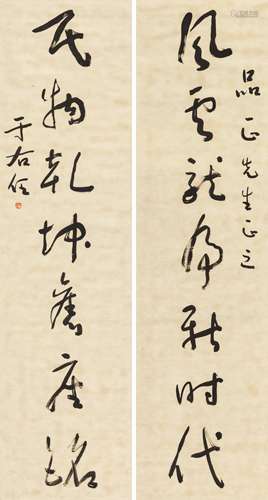 品正先生正之
风云龙虎新时代
民物乾坤旧座铭
于右任